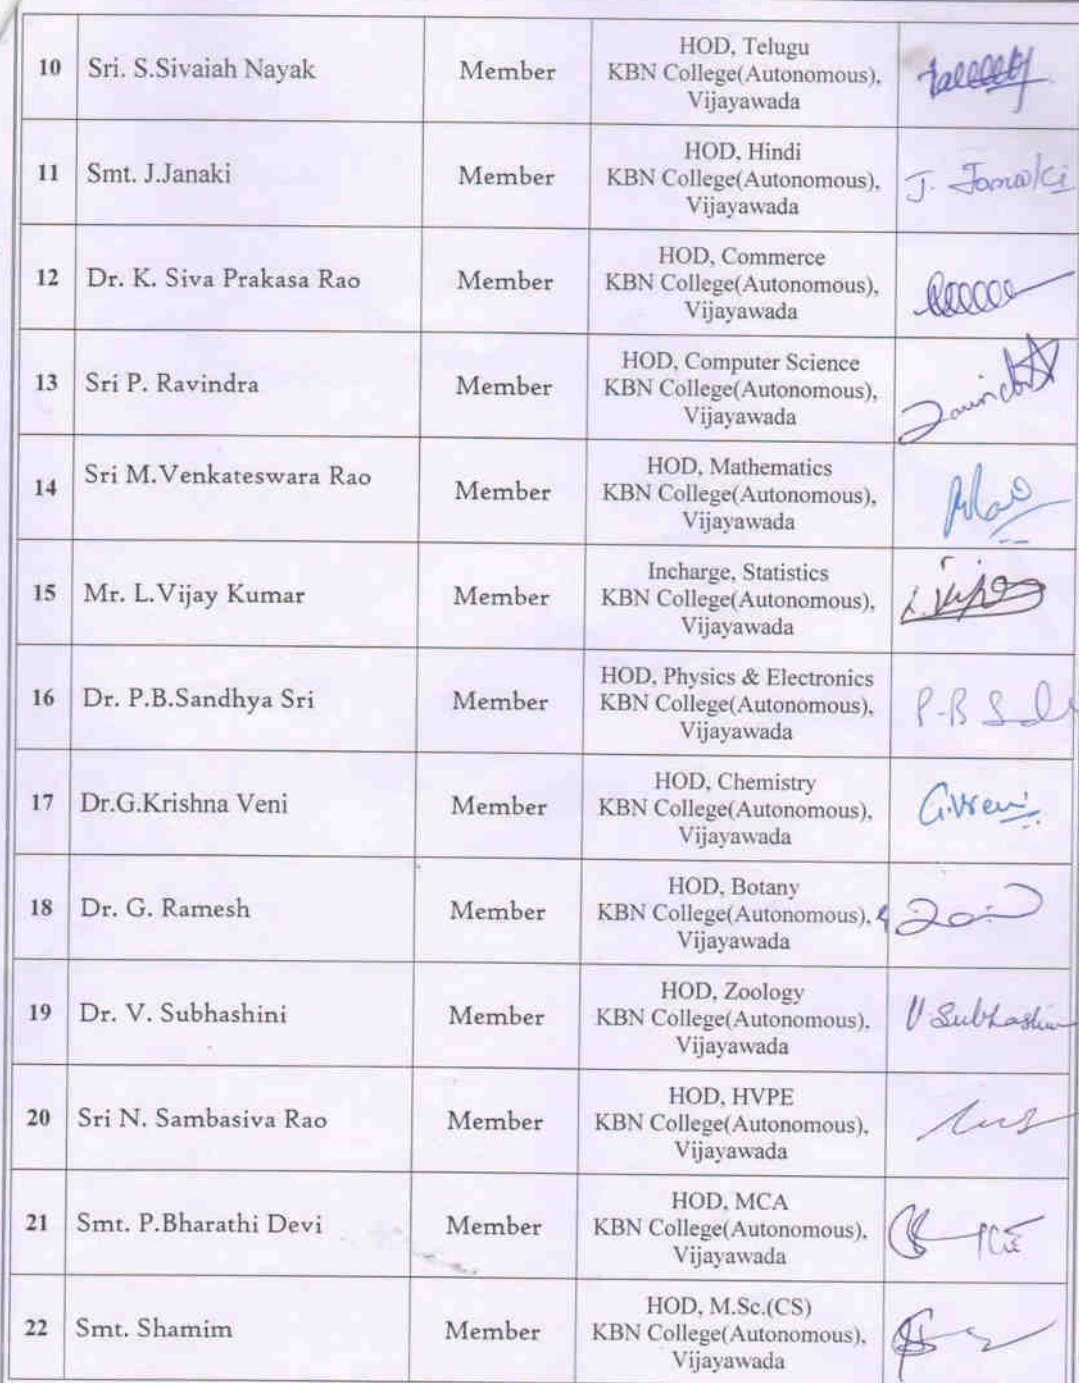 10 Sri. S.Sivaiah Nayak Member HOD, Telugu
KBN College(Autonomous),
Vijayawada
11 Smt. J.Janaki Member HOD, Hindi
KBN College(Autonomous),
Vijayawada
J. Janaki
12 Dr. K. Siva Prakasa Rao Member HOD, Commerce
KBN College(Autonomous),
Vijayawada
13 Sri P. Ravindra Member HOD, Computer Science
KBN College(Autonomous),
Vijayawada
14 Sri M.Venkateswara Rao Member HOD, Mathematics
KBN College(Autonomous),
Vijayawada
15 Mr. L.Vijay Kumar Member Incharge, Statistics
KBN College(Autonomous),
Vijayawada
16 Dr. P.B.Sandhya Sri Member HOD, Physics & Electronics
KBN College(Autonomous),
Vijayawada
17 Dr.G.Krishna Veni Member HOD, Chemistry
KBN College(Autonomous),
Vijayawada
18 Dr. G. Ramesh Member HOD, Botany
KBN College(Autonomous),
Vijayawada
19 Dr. V. Subhashini Member HOD, Zoology
KBN College(Autonomous),
Vijayawada
V. Subhashini
20 Sri N. Sambasiva Rao Member HOD, HVPE
KBN College(Autonomous),
Vijayawada
21 Smt. P.Bharathi Devi Member HOD, MCA
KBN College(Autonomous),
Vijayawada
22 Smt. Shamim Member HOD, M.Sc.(CS)
KBN College(Autonomous),
Vijayawada